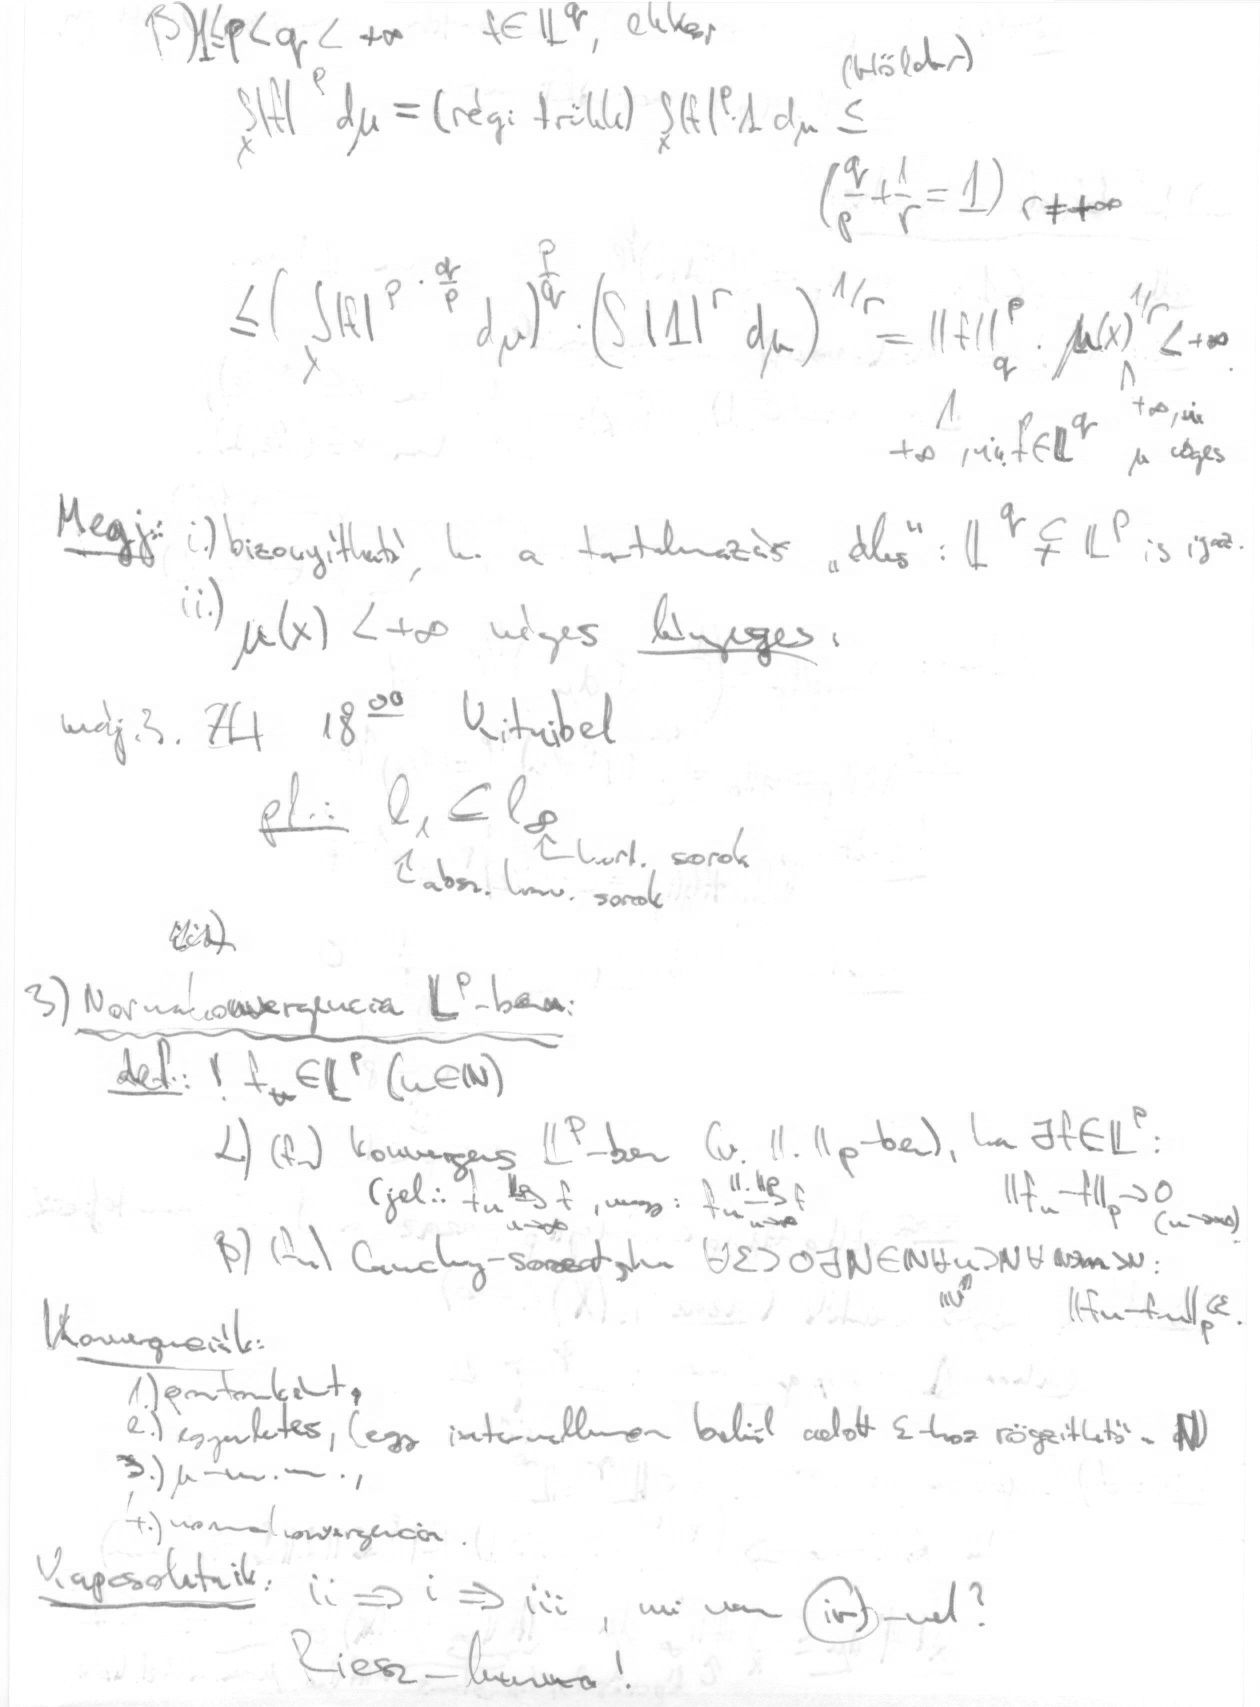 β) 1≤p<q<+∞ f∈𝕃^q, ekkor
∫_X |f|^p dμ = (régi trükk) ∫_X |f|^p·1 dμ ≤ (Hölder)
(q/p + 1/r = 1) r≠+∞
≤ (∫_X |f|^{p·q/p} dμ)^{p/q} · (∫ |1|^r dμ)^{1/r} = ||f||_q^p · μ(X)^{1/r} < +∞.
+∞, mi. f∈𝕃^q +∞, mi. μ véges
Megj.: i.) bizonyítható, h. a tartalmazás „éles”: 𝕃^q ⊊ 𝕃^p is igaz.
ii.) μ(X) < +∞ véges lényeges.
máj. 3. ZH 18^{00} Kitaibel
pl.: l_1 ⊆ l_∞
↑ korl. sorok
↑ absz. konv. sorok
3) Normakonvergencia 𝕃^p-ben:
def.: ! f_n∈𝕃^p (n∈ℕ)
α) (f_n) konvergens 𝕃^p-ben (v. ||.||_p-ben), ha ∃f∈𝕃^p:
(jel.: f_n →^{𝕃^p}_{n→∞} f, vagy: f_n →^{||.||_p}_{n→∞} f ||f_n−f||_p→0 (n→∞)
β) (f_n) Cauchy-sorozat, ha ∀ε>0 ∃N∈ℕ ∀n>N ∀m>N:
||f_n−f_m||_p<ε.
Konvergenciák:
1.) pontonként,
2.) egyenletes, (egy intervallumon belül adott ε-hoz rögzíthető N)
3.) μ-m.m.,
4.) normakonvergencia.
Kapcsolataik: ii ⇒ i ⇒ iii, mi van iv)-vel?
Riesz-lemma!